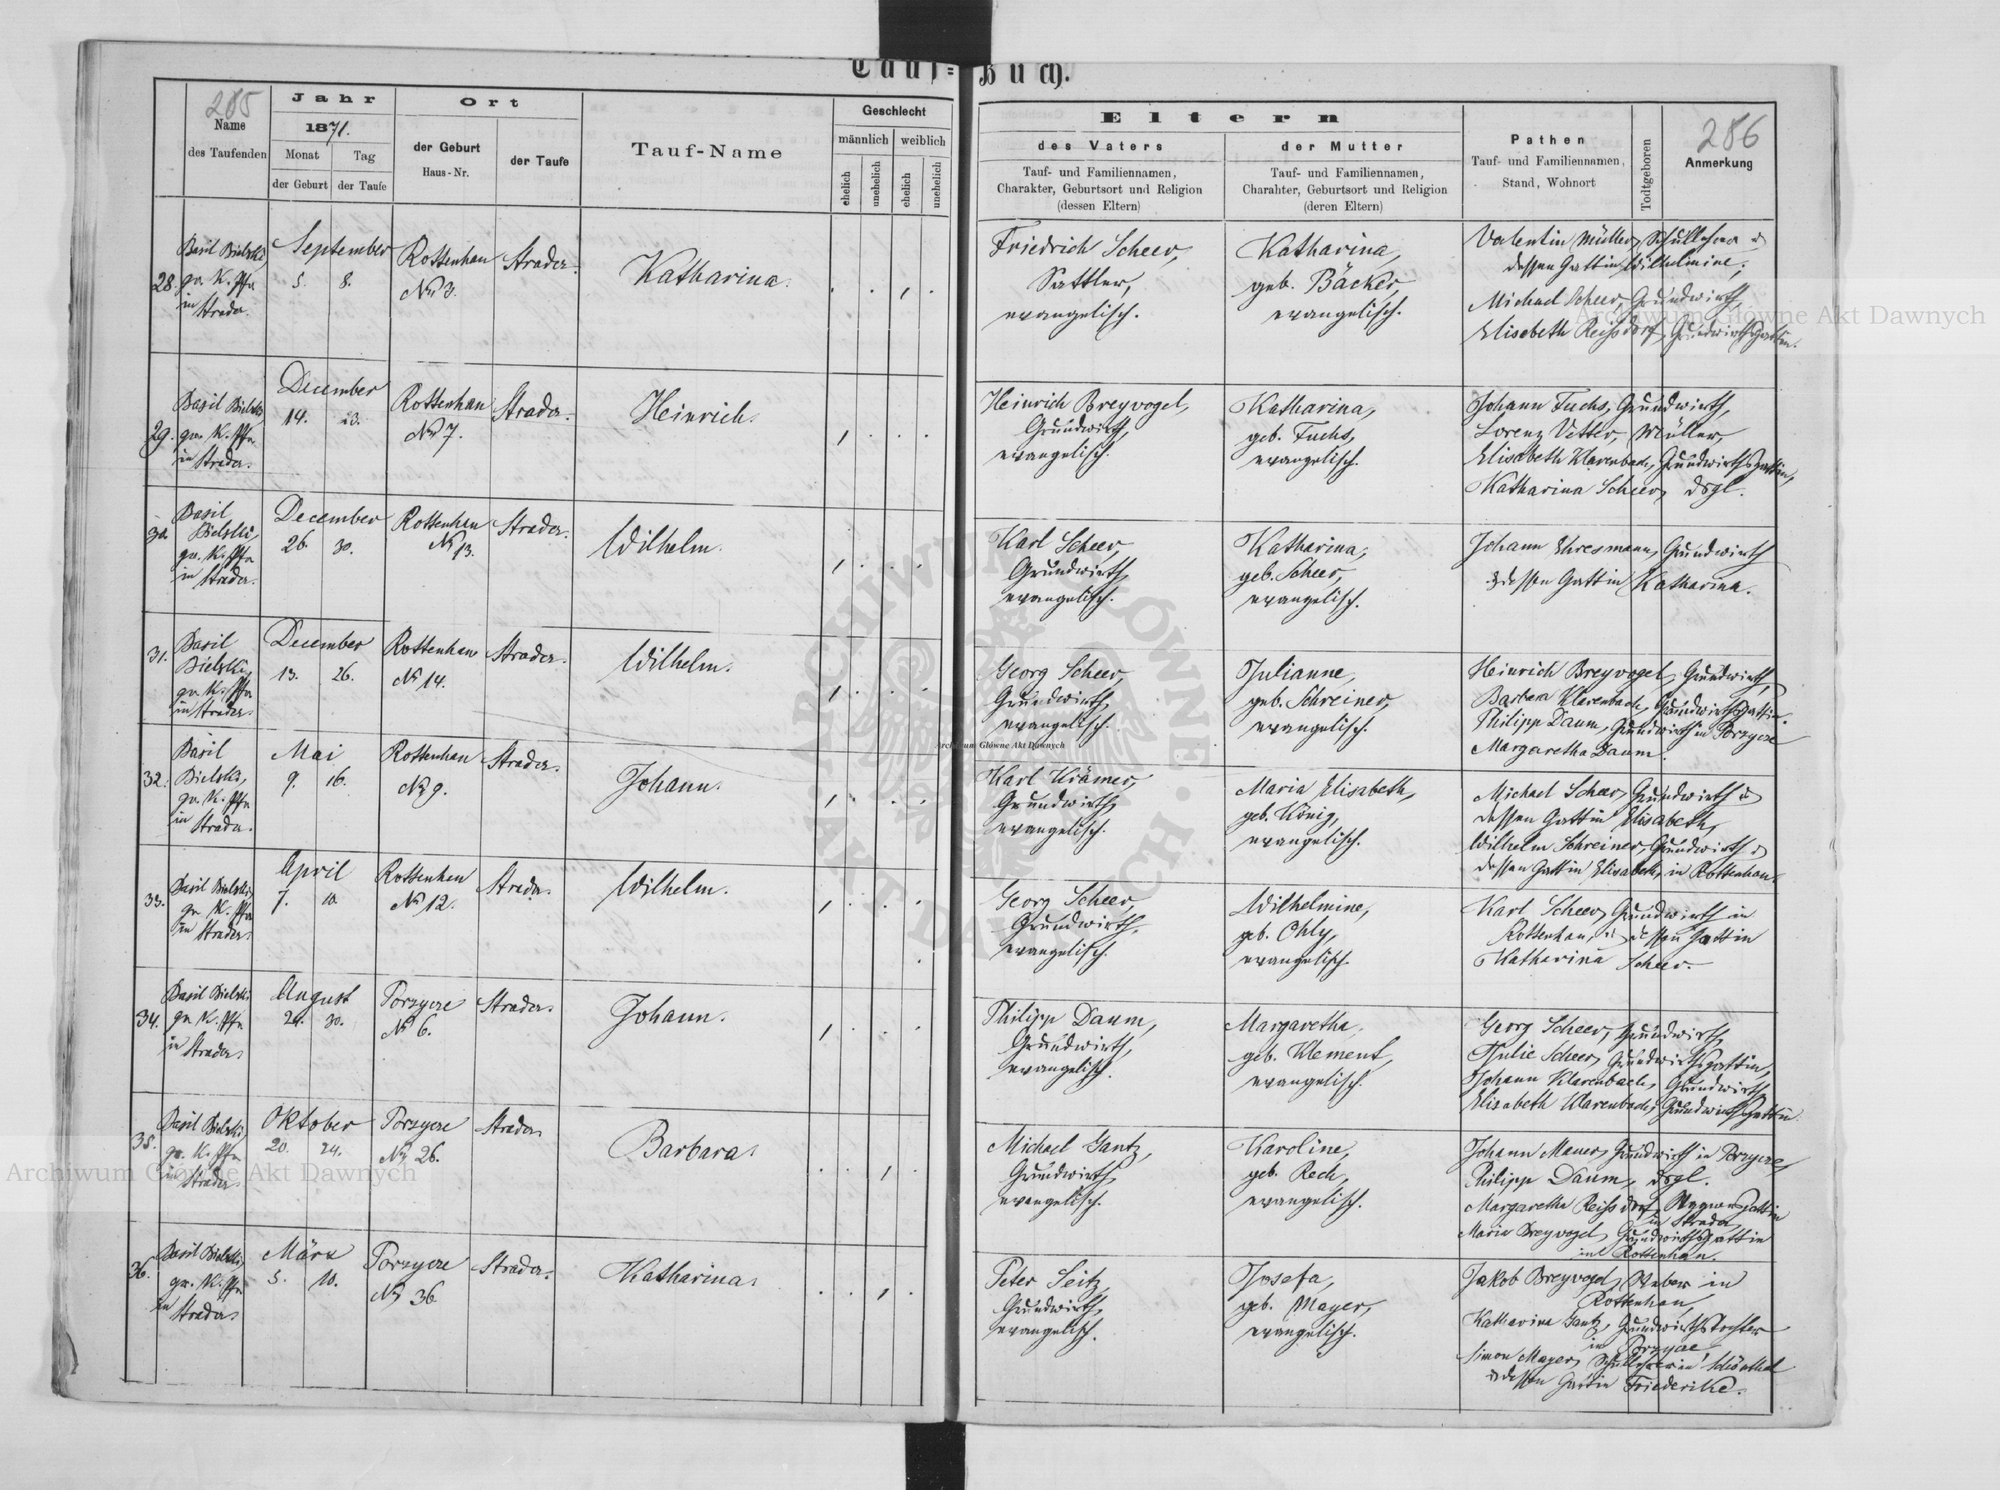 Tauf=Buch.
285
Name
des Taufenden
Jahr
1871.
Monat
Tag
der Geburt
der Taufe
Ort
der Geburt
Haus-Nr.
der Taufe
Tauf-Name
Geschlecht
männlich
weiblich
ehelich
unehelich
ehelich
unehelich
Eltern
des Vaters
Tauf- und Familiennamen,
Charakter, Geburtsort und Religion
(dessen Eltern)
der Mutter
Tauf- und Familiennamen,
Charahter, Geburtsort und Religion
(deren Eltern)
Pathen
Tauf- und Familiennamen,
Stand, Wohnort
Todtgeboren
286
Anmerkung
28.
Basil Bielski
gr. K. Pfr
in Strader.
September
5. 8.
Rottenhan
No 3.
Strader.
Katharina.
Friedrich Scheer,
Sattler,
evangelisch.
Katharina,
geb. Bäcker,
evangelisch.
Valentin Müller, Schullehrer u
dessen Gattin Wilhelmine,
Michael Scheer, Grundwirth,
Elisabeth Reissdorf, Grundwirthsgattin.
29.
Basil Bielski
gr. K. Pfr
in Strader.
December
14. 23.
Rottenhan
No 7.
Strader.
Heinrich.
Heinrich Breyvogel,
Grundwirth,
evangelisch.
Katharina,
geb. Fuchs,
evangelisch.
Johann Fuchs, Grundwirth,
Lorenz Vetter, Müller,
Elisabeth Klarenbach, Grundwirthsgattin,
Katharina Scheer, dsgl.
30.
Basil
Bielski,
gr. K. Pfr
in Strader.
December
26. 30.
Rottenhan
No 13.
Strader.
Wilhelm.
Karl Scheer,
Grundwirth,
evangelisch.
Katharina,
geb. Scheer,
evangelisch.
Johann Ehresmann, Grundwirth
u dessen Gattin Katharina.
31.
Basil
Bielski,
gr. K. Pfr
in Strader.
December
13. 26.
Rottenhan
No 14.
Strader.
Wilhelm.
Georg Scheer,
Grundwirth,
evangelisch.
Julianne,
geb. Schreiner,
evangelisch.
Heinrich Breyvogel, Grundwirth,
Barbara Klarenbach, Grundwirthsgattin.
Philipp Daum, Grundwirth in Porzyce
Margaretha Daum.
32.
Basil
Bielski,
gr. K. Pfr
in
Strader.
Mai
9. 16.
Rottenhan
No 9.
Strader.
Johann.
Karl Krämer,
Grundwirth,
evangelisch.
Maria Elisabeth,
geb. König,
evangelisch.
Michael Scheer, Grundwirth u
dessen Gattin Elisabeth,
Wilhelm Schreiner, Grundwirth u
dessen Gattin Elisabeth, in Rottenhan.
33.
Basil Bielski
gr. K. Pfr
in Strader.
April
7. 10.
Rottenhan
No 12.
Strader.
Wilhelm.
Georg Scheer,
Grundwirth,
evangelisch.
Wilhelmine,
geb. Ohly,
evangelisch.
Karl Scheer, Grundwirth in
Rottenhan, u dessen Gattin
Katharina Scheer.
34.
Basil Bielski
gr. K. Pfr
in Strader.
August
30.
Porzyce
No 6.
Strader.
Johann.
Philipp Daum,
Grundwirth,
evangelisch.
Margaretha,
geb. Klement,
evangelisch.
Georg Scheer, Grundwirth,
Julie Scheer, Grundwirthsgattin,
Johann Klarenbach, Grundwirth,
Elisabeth Klarenbach, Grundwirthsgattin.
35.
Basil Bielski
gr. K. Pfr
in Strader.
Oktober
20. 24.
Porzyce
No 26.
Strader
Barbara.
Michael Gantz,
Grundwirth,
evangelisch.
Karoline,
geb. Rech,
evangelisch.
Johann Mauer, Grundwirth in Porzyce,
Philipp Daum, dsgl.
Margaretha Reissdorf, Wagnersgattin
in Strader,
Maria Breyvogel, Grundwirthsgattin
in Rottenhan.
36.
Basil Bielski
gr. K. Pfr
in
Strader
März
5. 10.
Porzyce
No 36
Strader.
Katharina.
Peter Seitz,
Grundwirth,
evangelisch.
Josefa,
geb. Mayer,
evangelisch.
Jakob Breyvogel, Weber in
Rottenhan,
Katharina Gantz, Grundwirthstochter
in Porzyce
Simon Mayer, Schullehrer in Schönthal
u dessen Gattin Friederike.
Archiwum Główne Akt Dawnych
Archiwum Główne Akt Dawnych
Archiwum Główne Akt Dawnych
ARCHIWUM GŁÓWNE AKT DAWNYCH